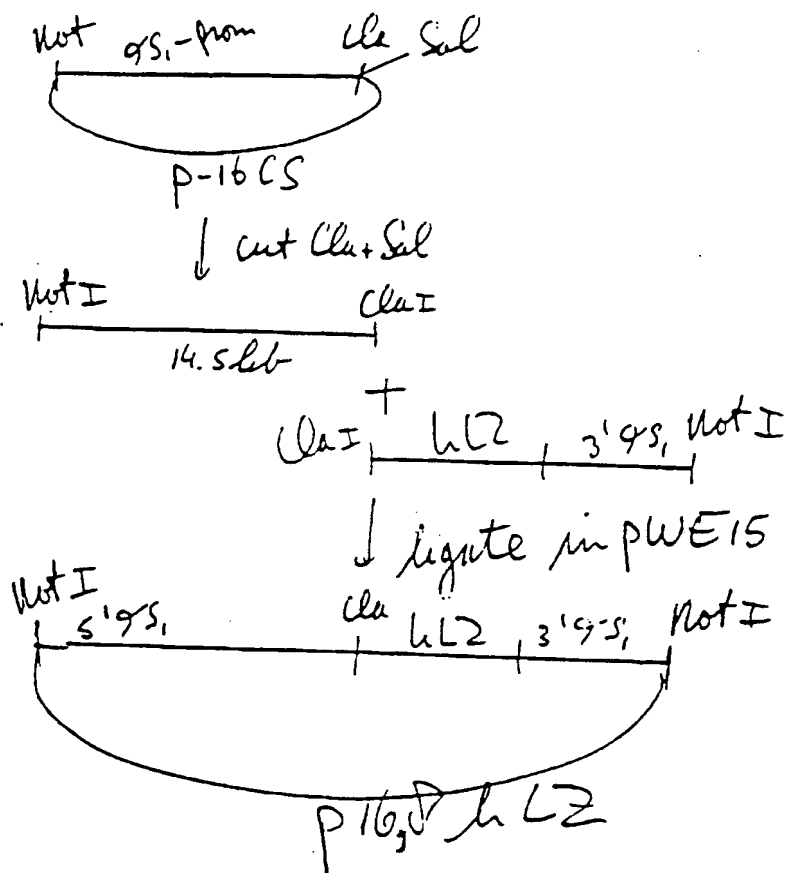 Not αS₁-prom Cla Sal
p-16 CS
↓ cut Cla+Sal
Not I Cla I
14.5 kb
+
Cla I hLZ 3'αS₁ Not I
↓ ligate in pWE15
Not I 5'αS₁ Cla hLZ 3'αS₁ Not I
p16,8 hLZ